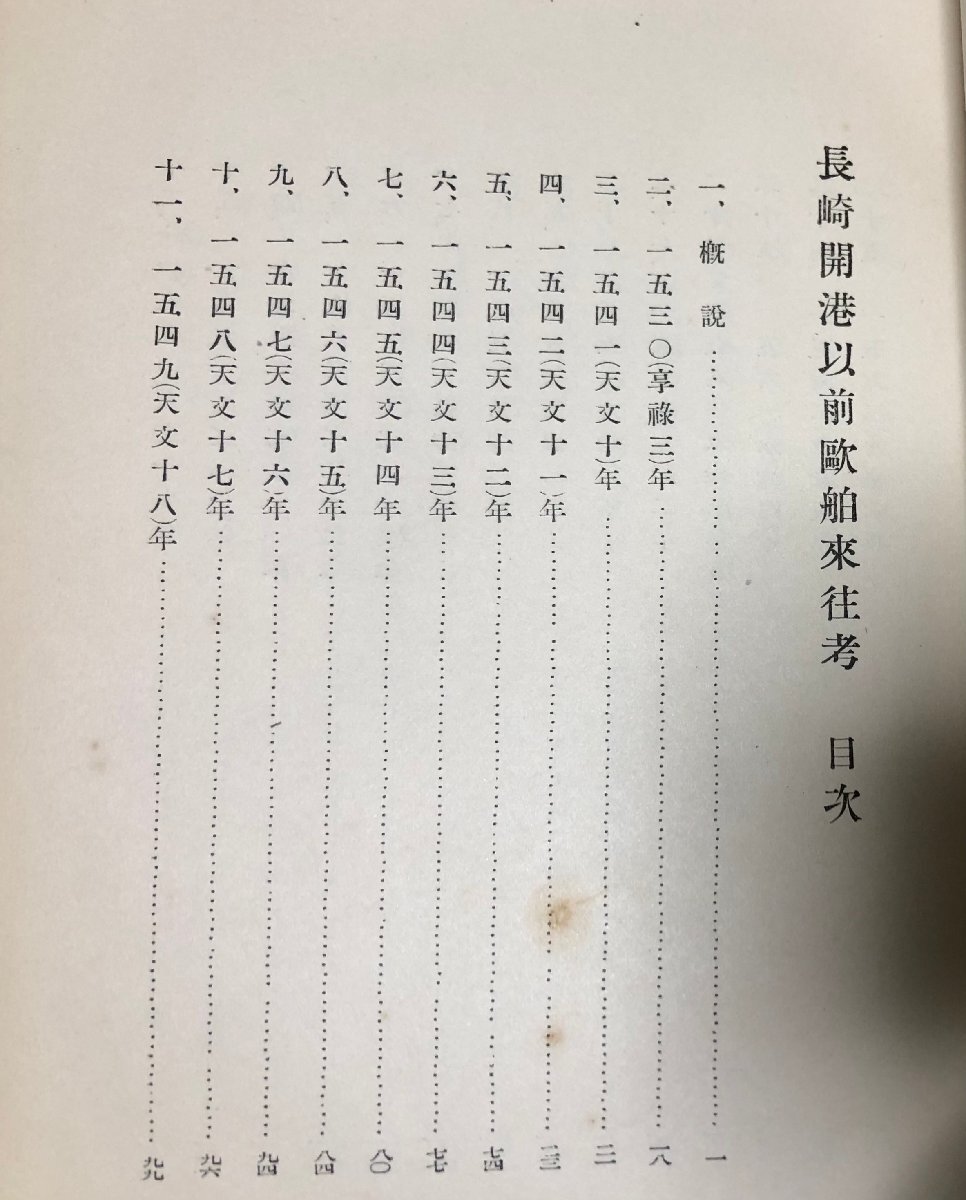 長崎開港以前歐舶來往考　目次
一、概説……一
二、一五三〇(享祿三)年……一八
三、一五四一(天文十)年……二一
四、一五四二(天文十一)年……二三
五、一五四三(天文十二)年……七四
六、一五四四(天文十三)年……七七
七、一五四五(天文十四年……八〇
八、一五四六(天文十五)年……八四
九、一五四七(天文十六)年……九四
十、一五四八(天文十七)年……九六
十一、一五四九(天文十八)年……九九